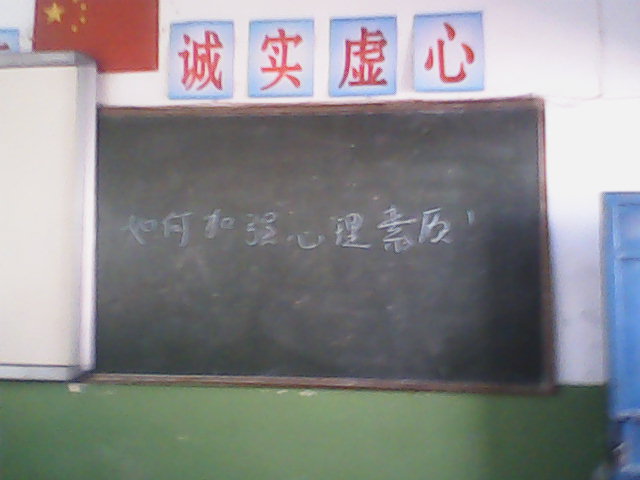 诚实虚心
如何加强心理素质!